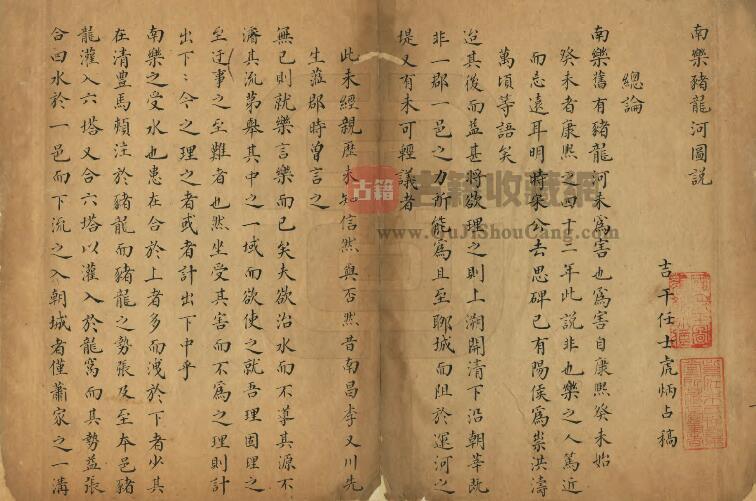 南樂豬龍河圖說
吉平任士虎炳占稿
總論
南樂舊有豬龍河未為害也為害自康熙癸未始
癸未者康熙之四十二年此說非也樂之人篤近
而忘遠耳明時宋公去思碑已有陽侯為祟洪濤
萬頃等語矣
迨其後而益甚將欲理之則上溯開清下沿朝莘既
非一郡一邑之力所能為且至聊城而阻於運河之
堤又有未可輕議者
此未經親歷未知信然與否然昔南昌李又川先
生蒞郡時曾言之
無已則就樂言樂而已矣夫欲治水而不導其源不
濬其流第舉其中之一域而欲使之就吾理固理之
至迂事之至難者也然坐受其害而不為之理則計
出下下今之理之者或者計出下中乎
南樂之受水也患在合於上者多而洩於下者少其
在清豐馬頰注於豬龍而豬龍之勢張及至本邑豬
龍灌入六塔又合六塔以灌入於龍窩而其勢益張
合四水於一邑而下流之入朝城者僅蕭家之一溝
古籍
古籍收藏網
www.GuJiShouCang.com